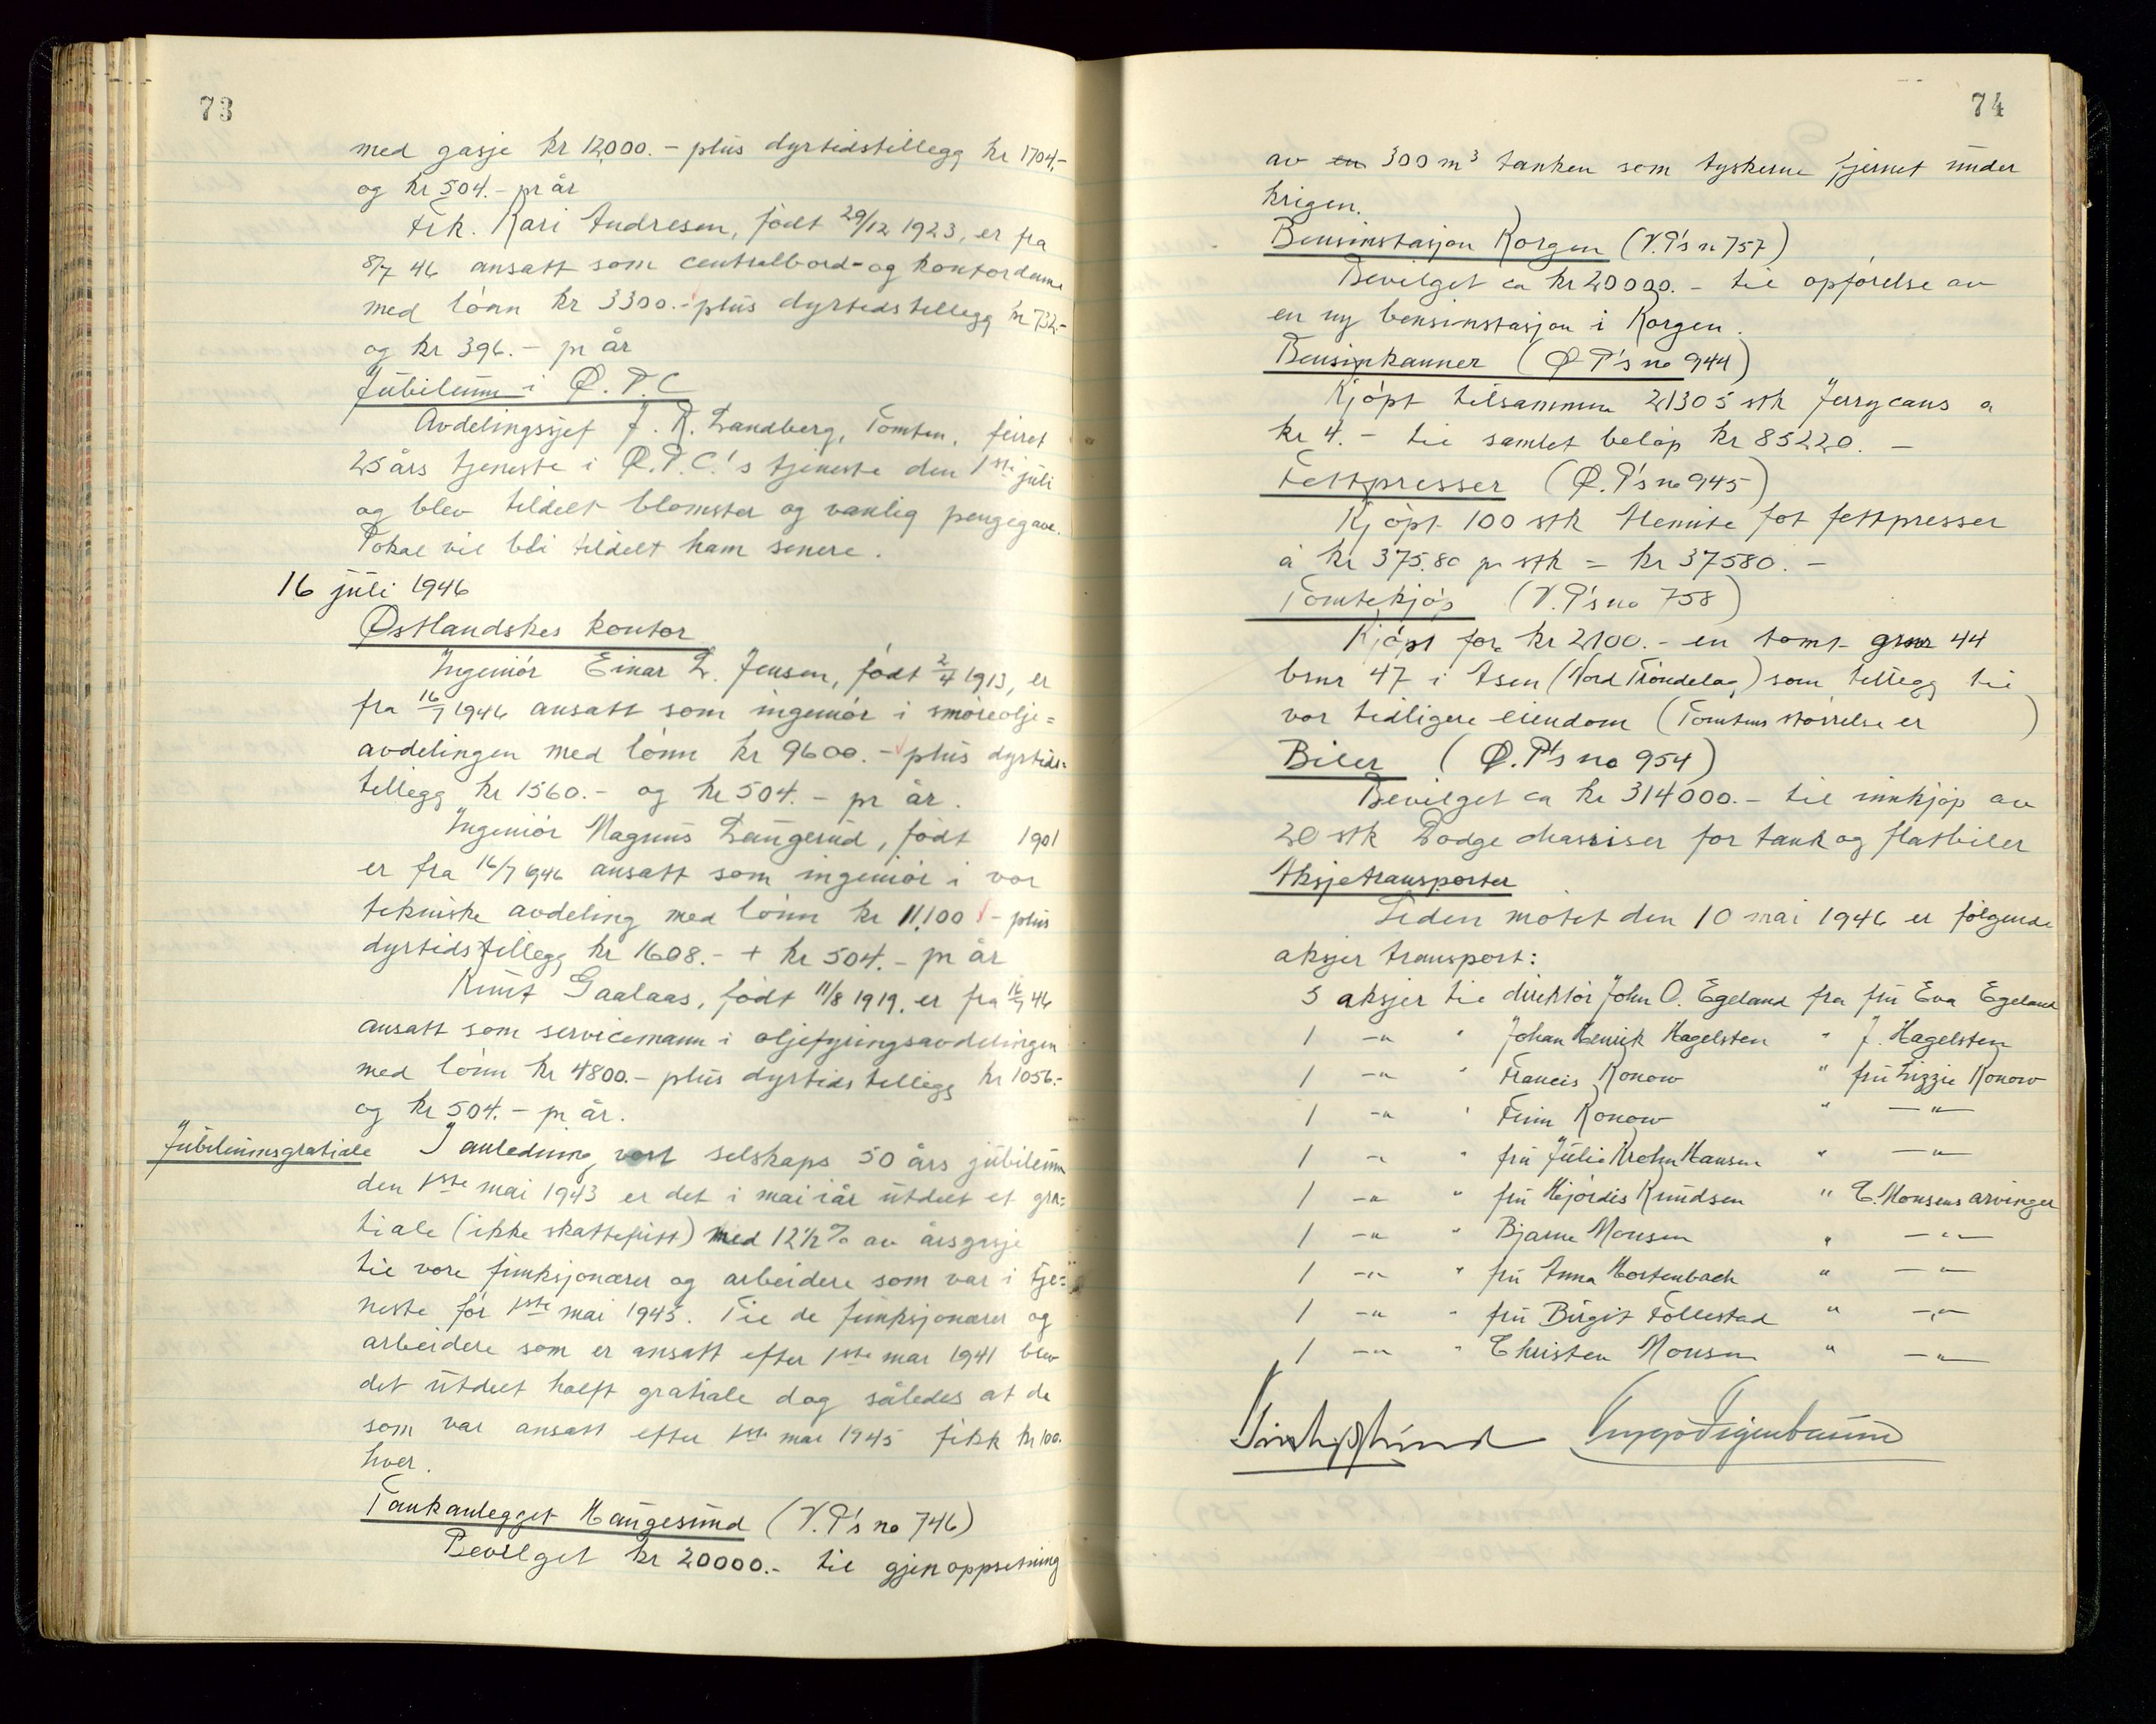 73
med gasje kr 12000.- plus dyrtidstillegg kr 1704,-
og kr 504.- pr år
Frk. Kari Andresen, født 29/12 1923, er fra
8/7 46 ansatt som centralbord- og kontordame
med lönn kr 3300.- plus dyrtidstillegg kr 732.-
og kr 396.- pr år
Jubileum i Ø.P.C
Avdelingssjef J. R. Landberg, Tomten, feiret
25 års tjeneste i Ø.P.C.'s tjeneste den 1ste juli
og blev tildelt blomster og vanlig pengegave.
Pokal vil bli tildelt ham senere.
16 juli 1946
Østlandskes kontor
Ingeniör Einar L. Jensen, født 2/4 1913, er
fra 16/7 1946 ansatt som ingeniör i smöreolje=
avdelingen med lönn kr 9600.- plus dyrtids=
tillegg kr 1560.- og kr 504.- pr år.
Ingeniör Magnus Langerud, födt 1901
er fra 16/7 1946 ansatt som ingeniör i vor
tekniske avdeling med lönn kr 11,100 - plus
dyrtidstillegg kr 1608.- + kr 504.- pr år
Knut Gaalaas, födt 11/8 1919, er fra 16/7 46
ansatt som servicemann i oljefyringsavdelingen
med lönn kr 4800.- plus dyrtidstillegg kr 1056.-
og kr 504.- pr år.
Jubileumsgratiale I anledning vort selskaps 50 års jubileum
den 1ste mai 1943 er det i mai iår utdelt et gra=
tiale (ikke skattefritt) med 12½% av årsgasje
til vore funksjonærer og arbeidere som var i tje=
neste för 1ste mai 1943. Til de funksjonærer og
arbeidere som er ansatt efter 1ste mai 1941 blev
det utdelt halft gratiale dog således at de
som var ansatt efter 1ste mai 1945 fikk kr 100.
hver.
Tankanlegget Haugesund (V.P's no 746)
Bevilget kr 20000.- til gjenoppsetning
74
av en 300 m³ tanken som tyskerne fjernet under
krigen.
Bensinstasjon Korgen (V.P's n 757)
Bevilget ca kr 20000.- til opførelse av
en ny bensinstasjon i Korgen.
Bensinkanner (Ø P's no 944)
Kjöpt tilsammen 21305 stk Jerrycans a
kr 4.- til samlet belöp kr 85220.-
Fettpresser (Ø.P's no 945)
Kjöpt 100 stk Alemite fot fettpresser
á kr 375.80 pr stk = kr 37580.-
Tomtekjöp (V.P's no 758)
Kjöpt for kr 2100.- en tomt gnr 44
bnr 47 i Åsen (Nord Tröndelag) som tillegg til
vor tidligere eiendom (Tomtens störrelse er )
Biler (Ø.P's no 954)
Bevilget ca kr 314000.- til innkjöp av
20 stk Dodge chassiser for tank og flatbiler
Aksjetransporter
Siden mötet den 10 mai 1946 er følgende
aksjer transport:
5 aksjer til direktör John O. Egeland fra fru Eva Egeland
1 -"- " Johan Henrik Hagelsten " J. Hagelsten
1 -"- " Francis Konow " fru Lizzie Konow
1 -"- " Finn Konow " -"-
1 -"- " fru Julie Krohn Hansen " -"-
1 -"- " fru Hjördis Knudsen " C. Monsens arvinger
1 -"- " Bjarne Monsen " -"-
1 -"- " fru Anna Mortenbach " -"-
1 -"- " fru Birgit Follestad " -"-
1 -"- " Christen Monsen " -"-